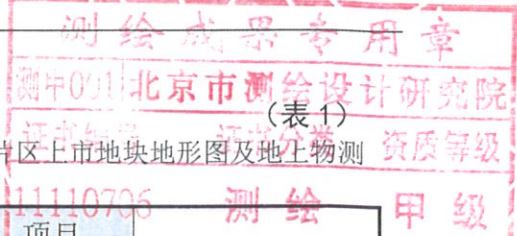 测绘成果专用章
测甲001 北京市测绘设计研究院
(表1)
证书编号 证书分类 资质等级
片区上市地块地形图及地上物测
11110706 测绘 甲级
项目